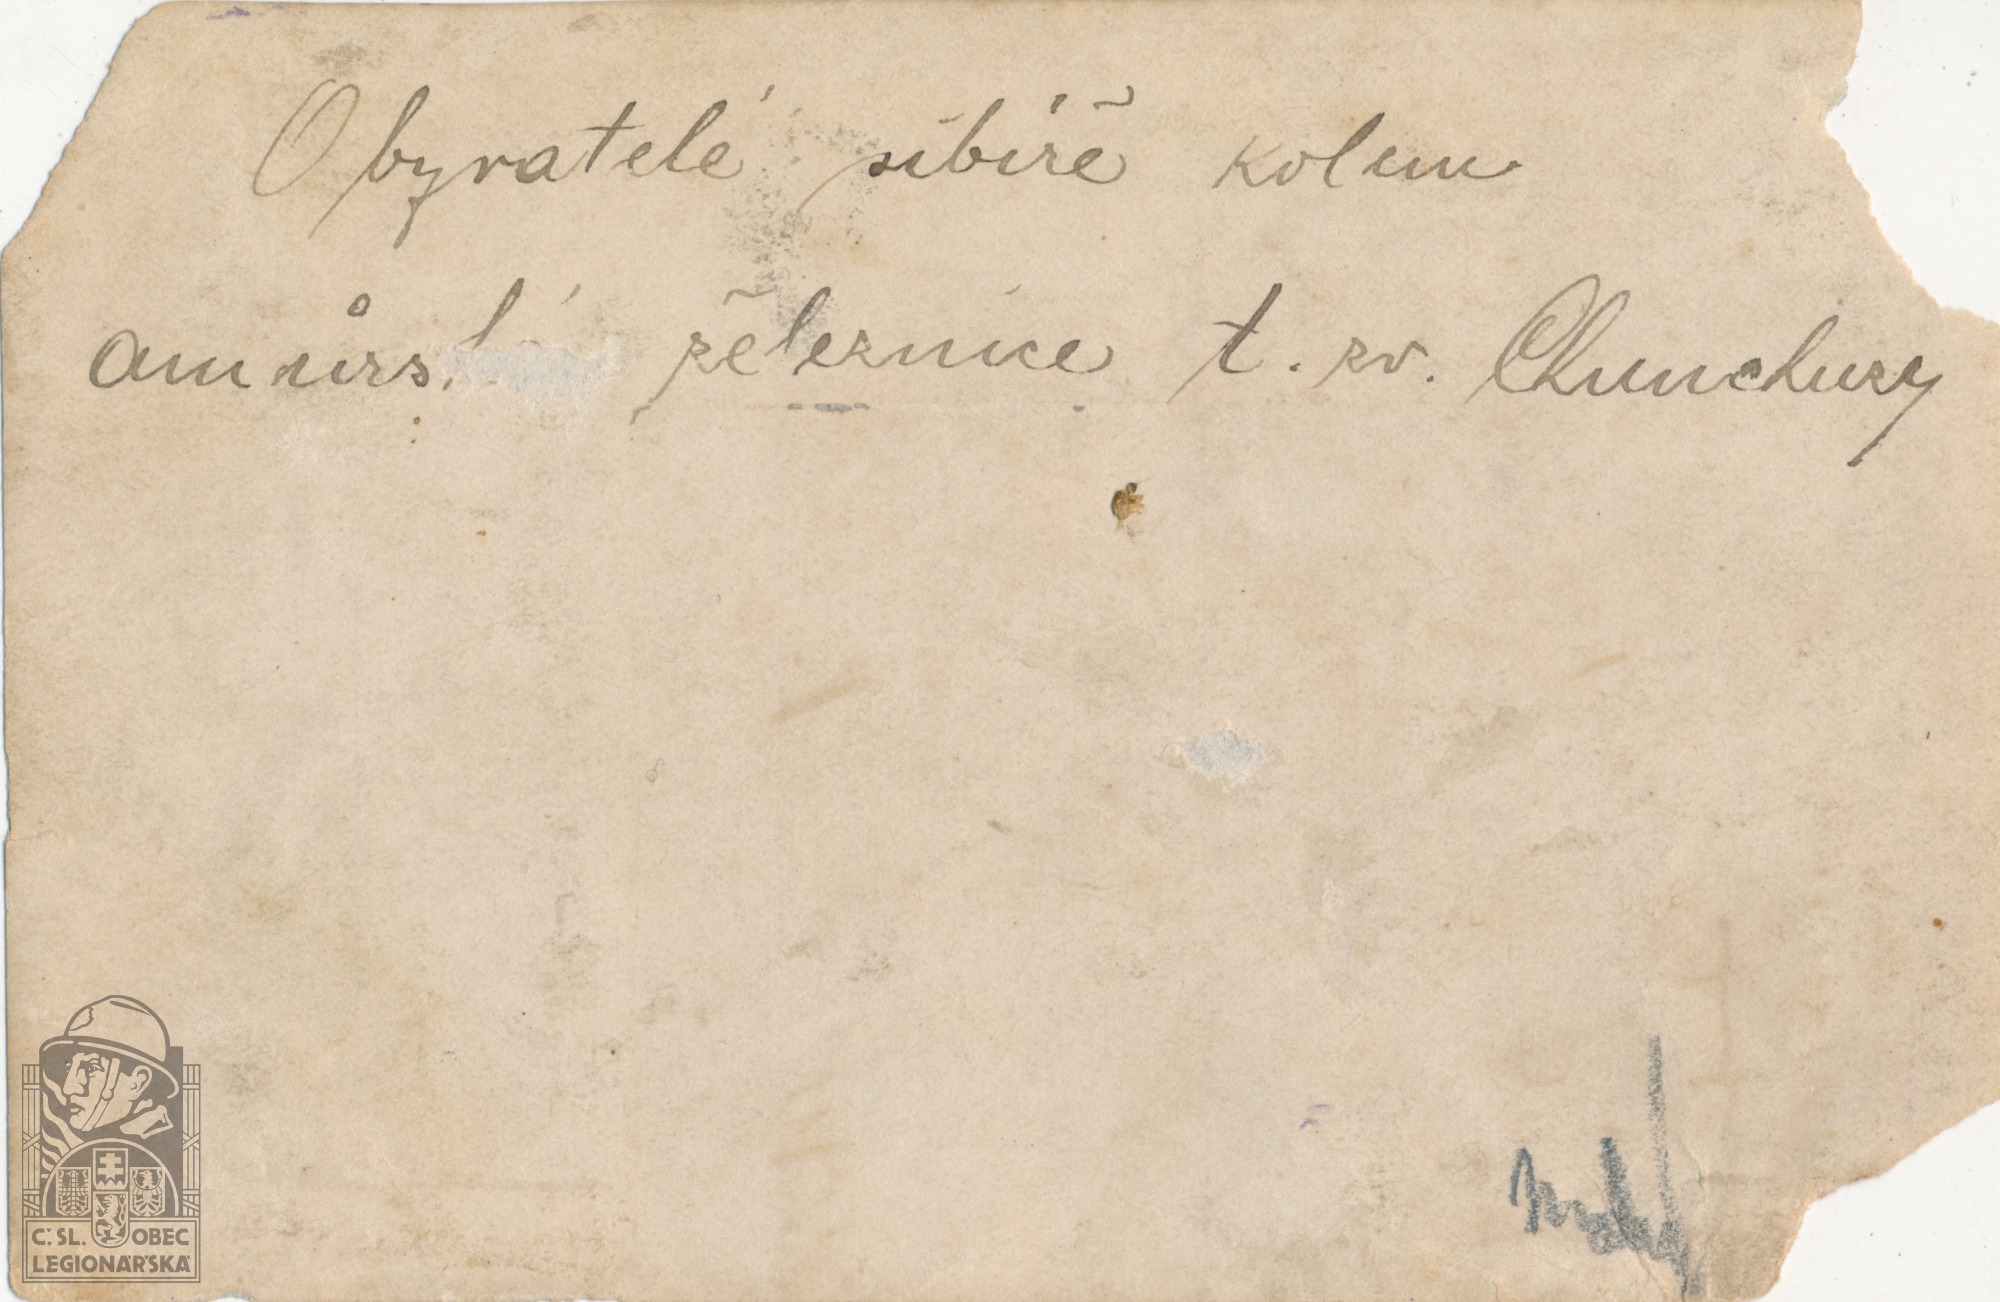 Obyvatelé sibiře kolem
amůrské železnice t. zv. Chunchuzy
Č. SL. OBEC
LEGIONÁŘSKÁ